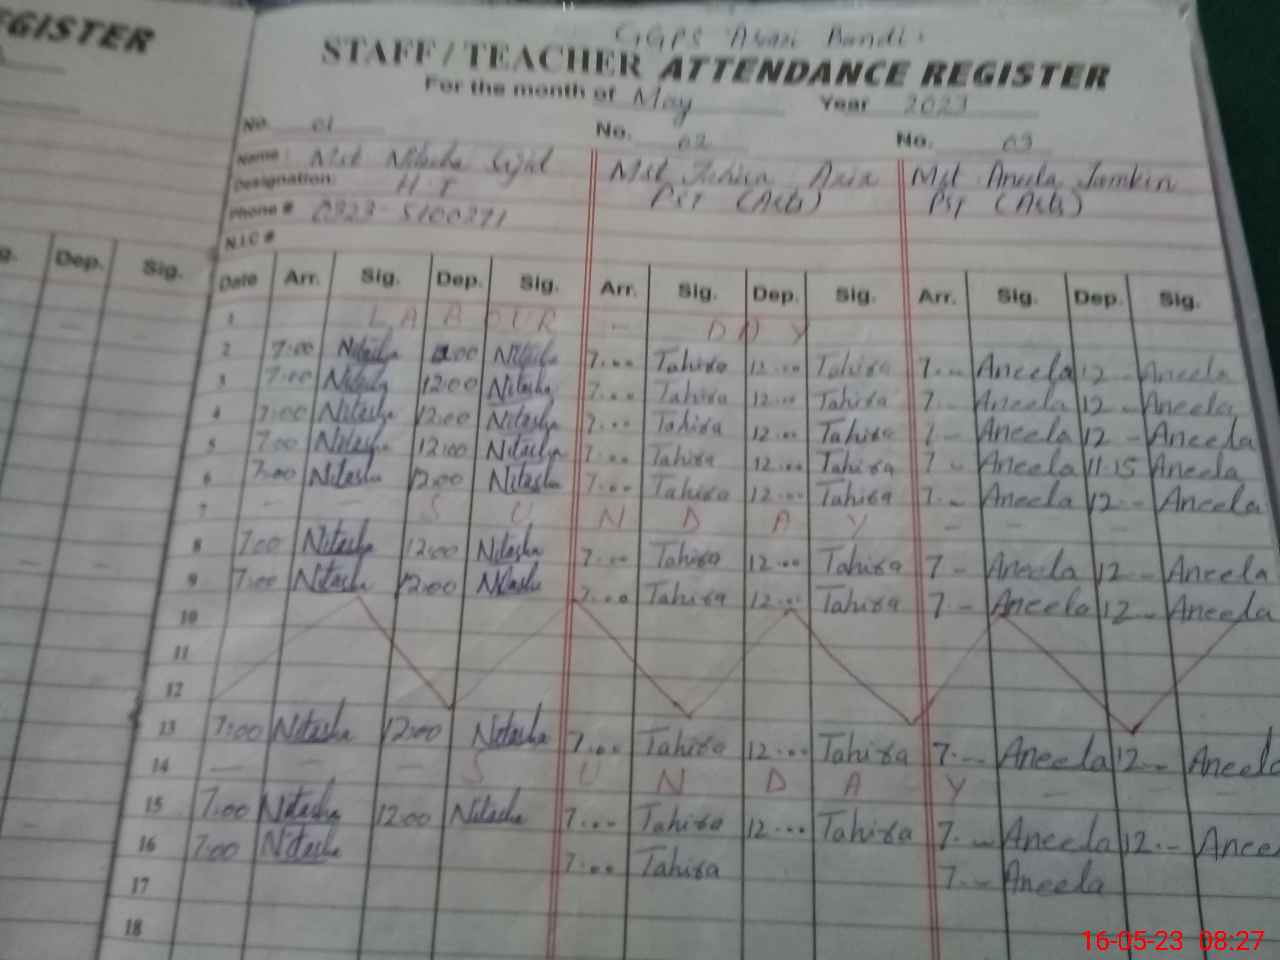 GISTER
GGPS Bandi
STAFF / TEACHER ATTENDANCE REGISTER
For the month of May Year 2023
No. 01 No. 02 No. 03
Name: Mst Nitasha Mst Mst Aneela
Designation: H T PST (Acts) PST (Acts)
Phone #
N.I.C #
g. Dep. Sig. Date Arr. Sig. Dep. Sig. Arr. Sig. Dep. Sig. Arr. Sig. Dep. Sig.
1 LABOUR - DAY
2 7:00 Nitasha 12:00 Nitasha 7:00 Tahira 12:00 Tahira 7 - Aneela 12 - Aneela
3 7:00 Nitasha 12:00 Nitasha 7:00 Tahira 12:00 Tahira 7 - Aneela 12 - Aneela
4 7:00 Nitasha 12:00 Nitasha 7:00 Tahira 12:00 Tahira 7 - Aneela 12 - Aneela
5 7:00 Nitasha 12:00 Nitasha 7:00 Tahira 12:00 Tahira 7 - Aneela 11.15 Aneela
6 7:00 Nitasha 12:00 Nitasha 7:00 Tahira 12:00 Tahira 7 - Aneela 12 - Aneela
7 - - S U N D A Y - - -
8 7:00 Nitasha 12:00 Nitasha 7:00 Tahira 12:00 Tahira 7 - Aneela 12 - Aneela
9 7:00 Nitasha 12:00 Nitasha 7:00 Tahira 12:00 Tahira 7 - Aneela 12 - Aneela
10
11
12
13 7:00 Nitasha 12:00 Nitasha 7:00 Tahira 12:00 Tahira 7 - Aneela 12 - Aneela
14 - - - S U N D A Y - -
15 7:00 Nitasha 12:00 Nitasha 7:00 Tahira 12:00 Tahira 7 - Aneela 12 - Anee
16 7:00 Nitasha 7:00 Tahira 7 - Aneela
17
18
16-05-23 08:27